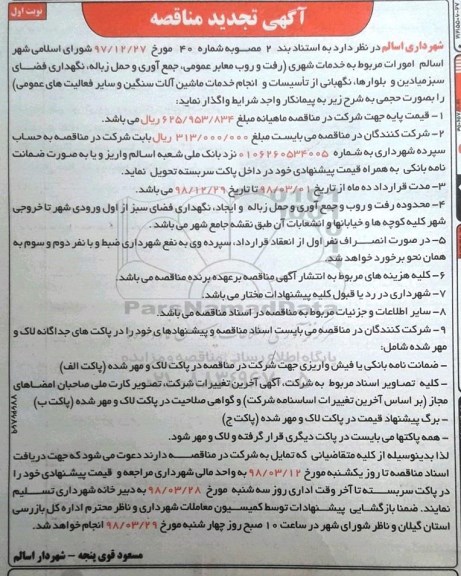 نوبت اول
آگهی تجدید مناقصه
شهرداری اسالم در نظر دارد به استناد بند ۲ مصوبه شماره ۴۰ مورخ ۹۷/۱۲/۲۷ شورای اسلامی شهر
اسالم امورات مربوط به خدمات شهری (رفت و روب معابر عمومی، جمع آوری و حمل زباله، نگهداری فضای
سبز میادین و بلوارها، نگهبانی از تأسیسات و انجام خدمات ماشین آلات سنگین و سایر فعالیت های عمومی)
را بصورت حجمی به شرح زیر به پیمانکار واجد شرایط واگذار نماید:
۱- قیمت پایه جهت شرکت در مناقصه ماهیانه مبلغ ۶۲۵/۹۵۳/۸۳۴ ریال می باشد.
۲- شرکت کنندگان در مناقصه می بایست مبلغ ۳۱۳/۰۰۰/۰۰۰ ریال بابت شرکت در مناقصه به حساب
سپرده شهرداری به شماره ۰۱۰۶۲۶۰۵۳۴۰۰۵ نزد بانک ملی شعبه اسالم واریز و یا به صورت ضمانت
نامه بانکی به همراه قیمت پیشنهادی خود در داخل پاکت سربسته تحویل نماید.
۳- مدت قرارداد ده ماه از تاریخ ۹۸/۰۳/۰۱ تا تاریخ ۹۸/۱۲/۲۹ می باشد.
۴- محدوده رفت و روب و جمع آوری و حمل زباله و ایجاد، نگهداری فضای سبز از اول ورودی شهر تا خروجی
شهر کلیه کوچه ها و خیابانها و انشعابات آن طبق نقشه جامع شهر می باشد.
۵- در صورت انصراف نفر اول از انعقاد قرارداد، سپرده وی به نفع شهرداری ضبط و با نفر دوم و سوم به
همان نحو برخورد خواهد شد.
۶- کلیه هزینه های مربوط به انتشار آگهی مناقصه بر عهده برنده مناقصه می باشد.
۷- شهرداری در رد یا قبول کلیه پیشنهادات مختار می باشد.
۸- سایر اطلاعات و جزئیات مربوط به مناقصه در اسناد مناقصه می باشد.
۹- شرکت کنندگان در مناقصه می بایست اسناد مناقصه و پیشنهادهای خود را در پاکت های جداگانه لاک و
مهر شده شامل:
- ضمانت نامه بانکی یا فیش واریزی جهت شرکت در مناقصه در پاکت لاک و مهر شده (پاکت الف)
- کلیه تصاویر اسناد مربوط به شرکت، آگهی آخرین تغییرات شرکت، تصویر کارت ملی صاحبان امضاهای
مجاز (بر اساس آخرین تغییرات اساسنامه شرکت) و گواهی صلاحیت در پاکت لاک و مهر شده (پاکت ب)
- برگ پیشنهاد قیمت در پاکت لاک و مهر شده (پاکت ج)
- همه پاکتها می بایست در پاکت دیگری قرار گرفته و لاک و مهر شود.
لذا بدینوسیله از کلیه متقاضیانی که تمایل به شرکت در مناقصه دارند دعوت می شود که جهت دریافت
اسناد مناقصه تا روز یکشنبه مورخ ۹۸/۰۳/۱۲ به واحد مالی شهرداری مراجعه و قیمت پیشنهادی خود را
در پاکت سربسته تا آخر وقت اداری روز سه شنبه مورخ ۹۸/۰۳/۲۸ به دبیر خانه شهرداری تسلیم
نمایند. ضمنا بازگشایی پیشنهادات توسط کمیسیون معاملات شهرداری و ناظر محترم اداره کل بازرسی
استان گیلان و ناظر شورای شهر در ساعت ۱۰ صبح روز چهار شنبه مورخ ۹۸/۰۳/۲۹ انجام خواهد شد.
مسعود قوی پنجه - شهردار اسالم
ParsNamadData
پایگاه اطلاع رسانی مناقصه و مزایده